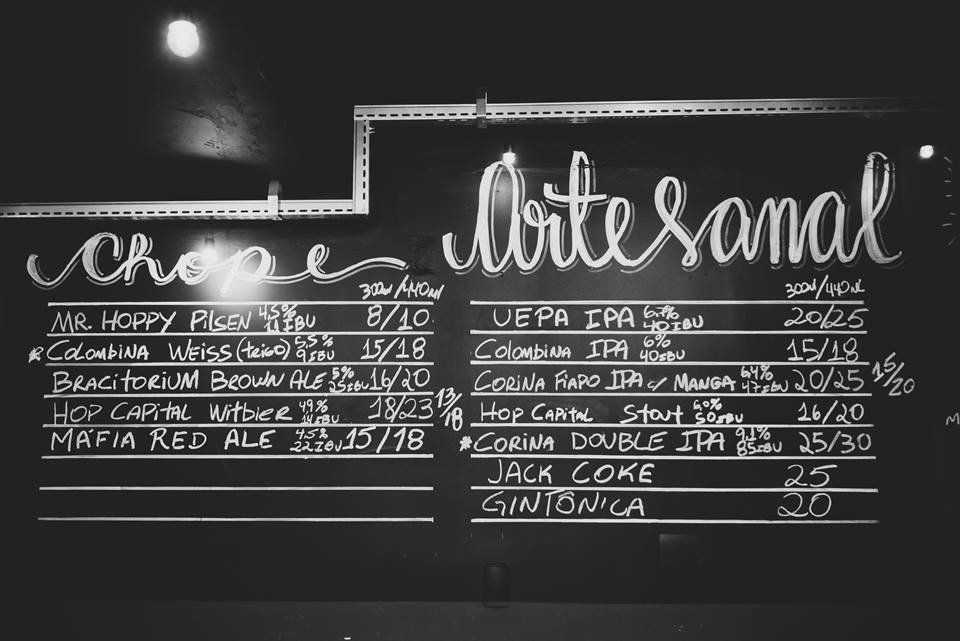 Chope Artesanal
300ml/440ml
MR. HOPPY PILSEN 4,5% 11 IBU 8/10
* COLOMBINA WEISS (trigo) 5,5% 9 IBU 15/18
BRACITORIUM BROWN ALE 5% 25 IBU 16/20
HOP CAPITAL WITBIER 4,9% 14 IBU 18/23 13/18
MÁFIA RED ALE 4,5% 22 IBU 15/18
300ml/440ml
UEPA IPA 40 IBU 20/25
COLOMBINA IPA 6% 40 IBU 15/18
CORINA FIAPO IPA c/ MANGA 6,4% 47 IBU 20/25 15/20
HOP CAPITAL STOUT 6,0% 50 IBU 16/20
* CORINA DOUBLE IPA 9,1% 85 IBU 25/30
JACK COKE 25
GINTÔNICA 20